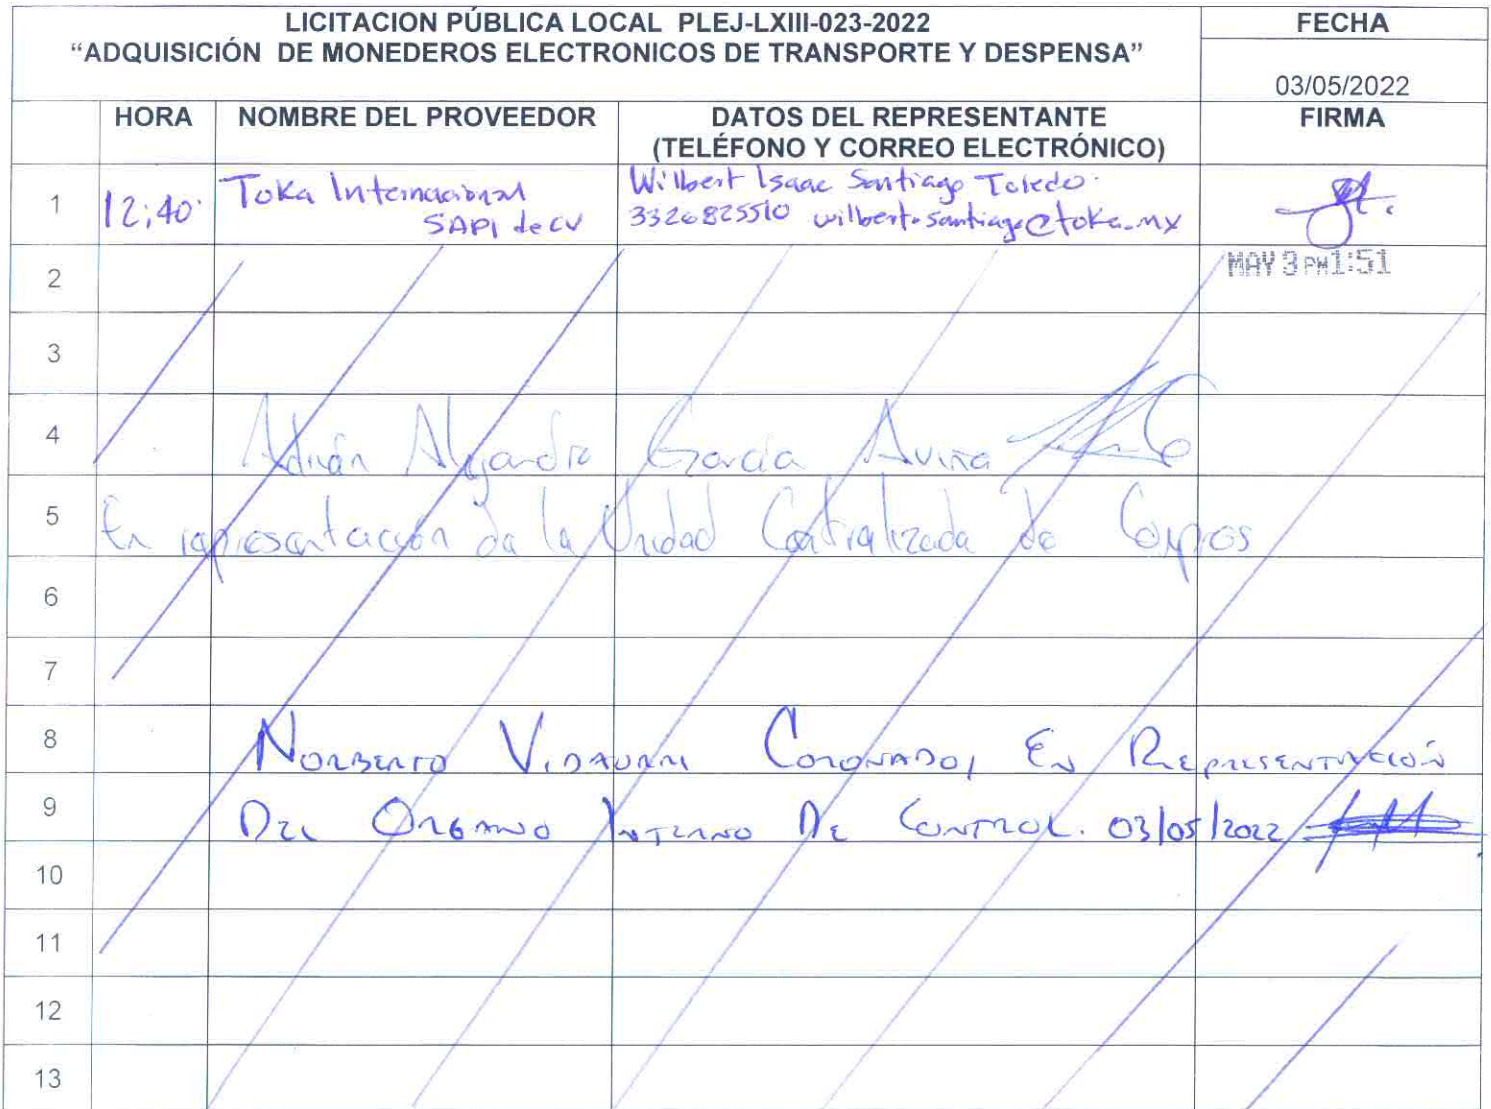 LICITACION PÚBLICA LOCAL PLEJ-LXIII-023-2022
"ADQUISICIÓN DE MONEDEROS ELECTRONICOS DE TRANSPORTE Y DESPENSA"
FECHA
03/05/2022
HORA NOMBRE DEL PROVEEDOR DATOS DEL REPRESENTANTE FIRMA
(TELÉFONO Y CORREO ELECTRÓNICO)
1 12:40 Toka Internacional Wilbert Isaac Santiago Toledo
SAPI de CV 3326825510 wilberto.santiago@toka.mx
2 MAY 3 PM 1:51
3
4 Adrián Alejandro García Aviña
5 En representación da la Unidad Centralizada de Compras
6
7
8 NORBERTO VIDAURRI CORONADO, EN REPRESENTACIÓN
9 DEL ORGANO INTERNO DE CONTROL. 03/05/2022
10
11
12
13